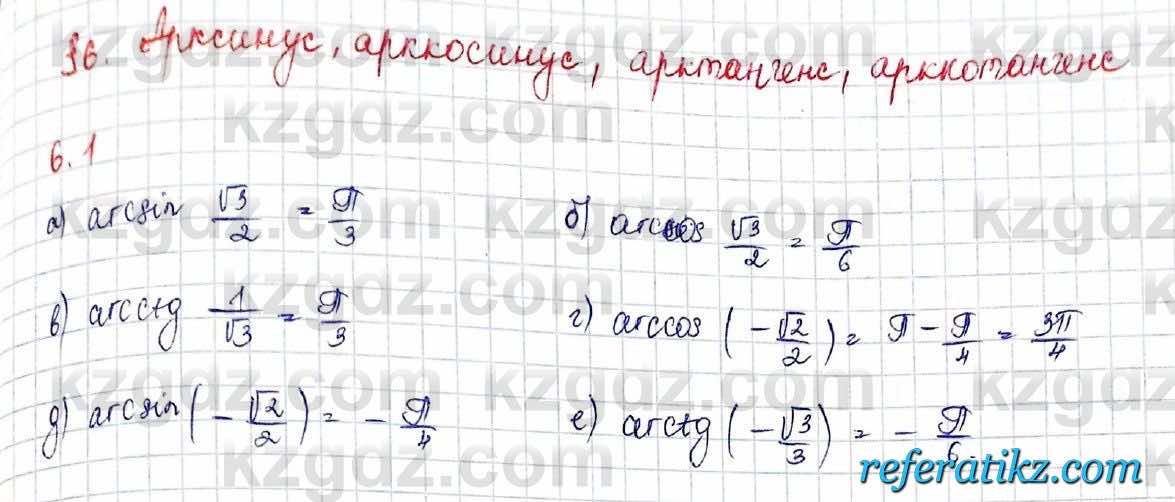 §6. Арксинус, арккосинус, арктангенс, арккотангенс
6.1
а) arcsin √3/2 = π/3 б) arccos √3/2 = π/6
в) arcctg 1/√3 = π/3 г) arccos (-√2/2) = π - π/4 = 3π/4
д) arcsin (-√2/2) = - π/4 е) arctg (-√3/3) = - π/6.
referatikz.com
kzgdz.com